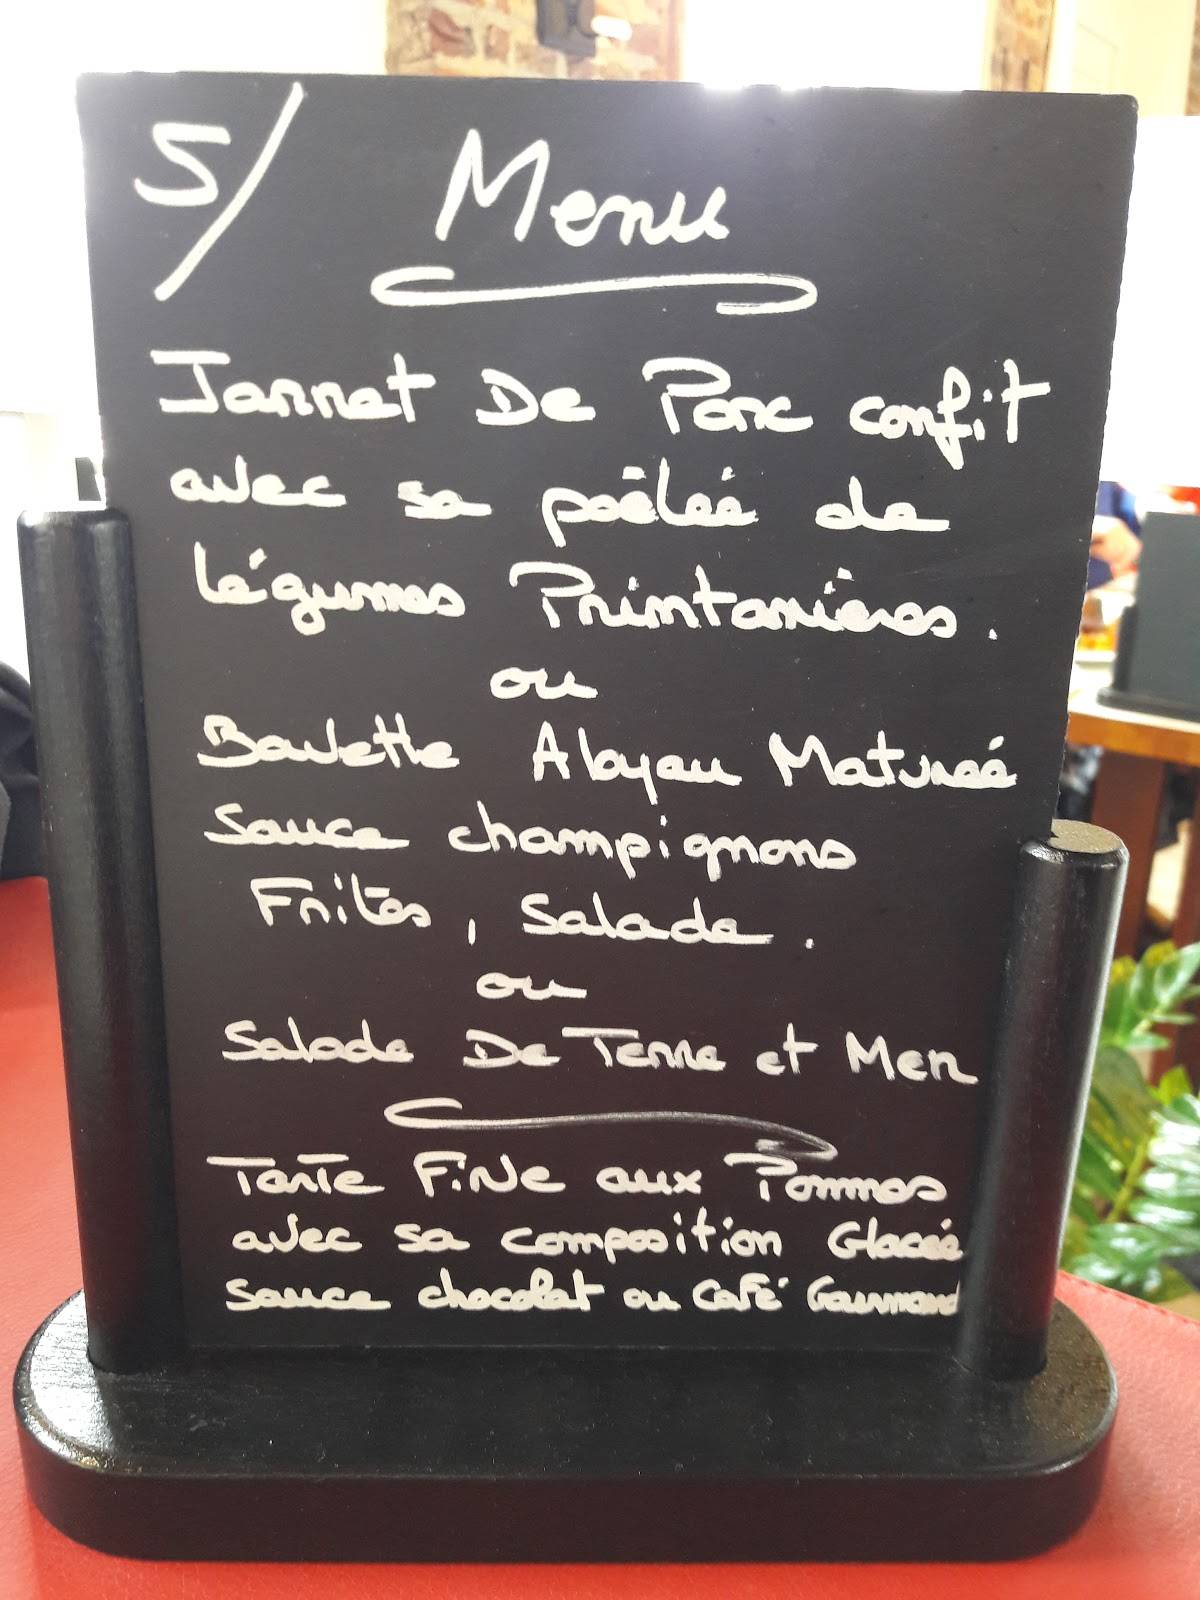 S/ Menu
Jarret De Porc confit
avec sa poêleé de
légumes Printanières.
ou
Bavette Aloyau Matureé
Sauce champignons
Frites, Salade.
ou
Salade De Terre et Mer
Tarte FiNe aux Pommes
avec sa composition Glacée
Sauce chocolat ou Café Gourmand